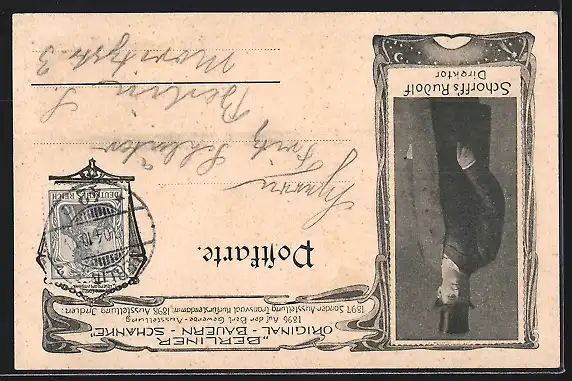 „BERLINER
ORIGINAL - BAUERN - SCHÄNKE"
1896 Auf der Berl. Gewerbe-Ausstellung
1897 Sonder-Ausstellung Transvaal, Kurfürstendamm, 1898 Ausstellung Indien.
Postkarte.
Herrn
Fritz
Berlin S
Moritzstr. 3
DEUTSCHES REICH
BERLIN
Schorff's Rudolf
Direktor